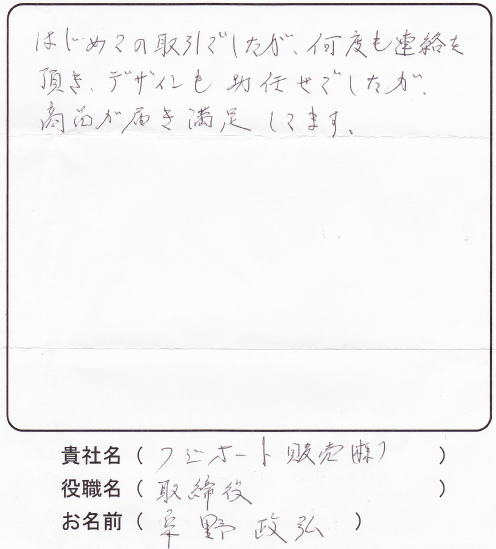 はじめての取引でしたが、何度も連絡を
頂き、デザインもお任せでしたが、
商品が届き満足してます。
貴社名（ フジボート販売(株) ）
役職名（ 取締役 ）
お名前（ 草野 政弘 ）